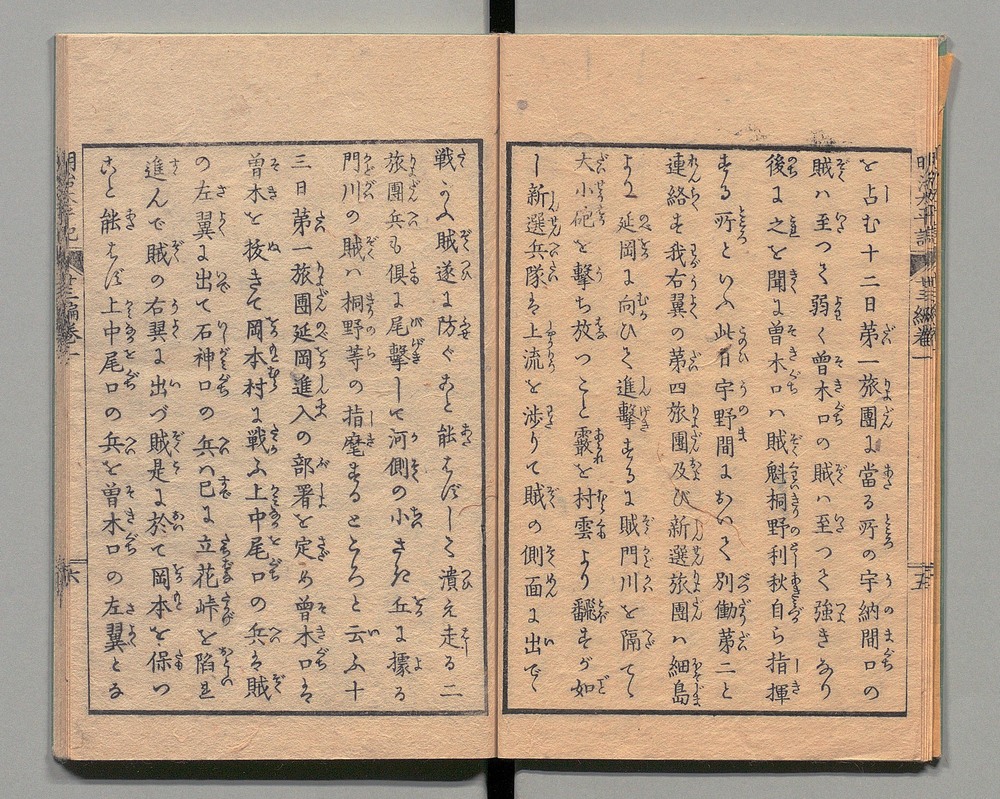 を占む十二日第一旅團に當る所の宇納間口の
賊ハ至つて弱く曽木口の賊ハ至つて強きあり
後に之を聞に曽木口ハ賊魁桐野利秋自ら指揮
する所といふ此日宇野間において別働第二と
連絡す我右翼の第四旅團及び新選旅團ハ細島
より延岡に向ひて進擊するに賊門川を隔てゝ
大小砲を擊ち放つこと霰を村雲より飜すが如
し新選兵隊は上流を渉りて賊の側面に出でゝ
戦ふ賊遂に防ぐこと能はずして潰え走る二
旅團兵も俱に尾擊して河側の小さき丘に據る
門川の賊ハ桐野等の指麾するところと云ふ十
三日第一旅團延岡進入の部署を定め曽木口は
曽木を抜きて岡本村に戦ふ上中尾口の兵は賊
の左翼に出て石神口の兵ハ已に立花峠を陷れ
進んで賊の右翼に出づ賊是に於て岡本を保つ
こと能はず上中尾口の兵を曽木口の左翼とな
明治太平記 廿三編卷一 五
明治太平記 廿三編卷一 六